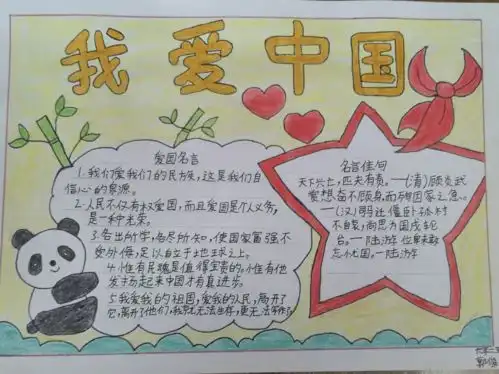 我爱中国
爱国名言
1.我们爱我们的民族,这是我们自
信心的泉源。
2.人民不仅有权爱国,而且爱国是个人义务,
是一种光荣。
3.各出所学,各尽所知,使国家富强不
受外侮,足以自立于地球之上。
4.惟有民魂是值得宝贵的,惟有他
发扬起来中国才有真进步。
5.我爱我的祖国,爱我的人民,离开了
它,离开了他们,我就无法生存,更无法写作
名言佳句
天下兴亡,匹夫有责。—(清)顾炎武
爱想奋不顾身,而殉国家之急。
—(汉)司迁僵卧孤村
不自哀,尚思为国戍轮
台。—陆游位卑未敢
忘忧国。—陆游